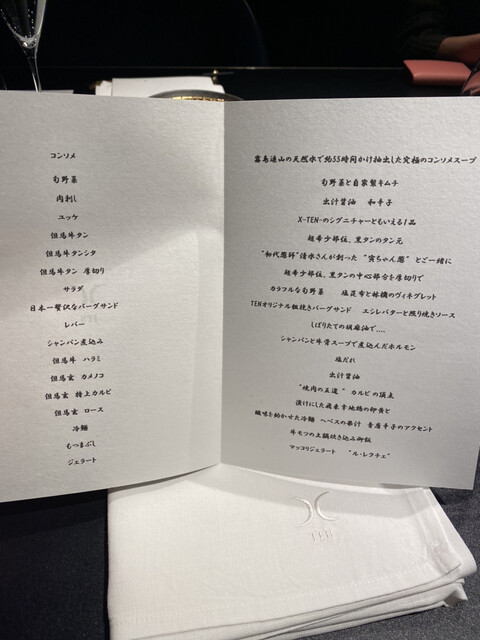 コンソメ
旬野菜
肉刺し
ユッケ
但馬牛タン
但馬牛タンシタ
但馬牛タン 厚切り
サラダ
日本一贅沢なバーグサンド
レバー
シャンパン煮込み
但馬牛 ハラミ
但馬玄 カメノコ
但馬玄 特上カルビ
但馬玄 ロース
冷麺
もつまぶし
ジェラート
霧島連山の天然水で約55時間かけ抽出した究極のコンソメスープ
旬野菜と自家製キムチ
出汁醤油 和辛子
X-TEN-のシグニチャーともいえる1品
超希少部位、黒タンのタン元
"初代葱師"清水さんが創った "寅ちゃん葱" とご一緒に
超希少部位、黒タンの中心部分を厚切りで
カラフルな旬野菜 塩昆布と林檎のヴィネグレット
TENオリジナル粗挽きバーグサンド エシレバターと照り焼きソース
しぼりたての胡麻油で....
シャンパンと牛骨スープで煮込んだホルモン
塩だれ
出汁醤油
"焼肉の王道" カルビの頂点
漬けにした龍の卵黄と
酸味を効かせた冷麺 ヘベスの果汁 青唐辛子のアクセント
牛モツの土鍋炊き込み御飯
マッコリジェラート "ル・レクチェ"
TEN